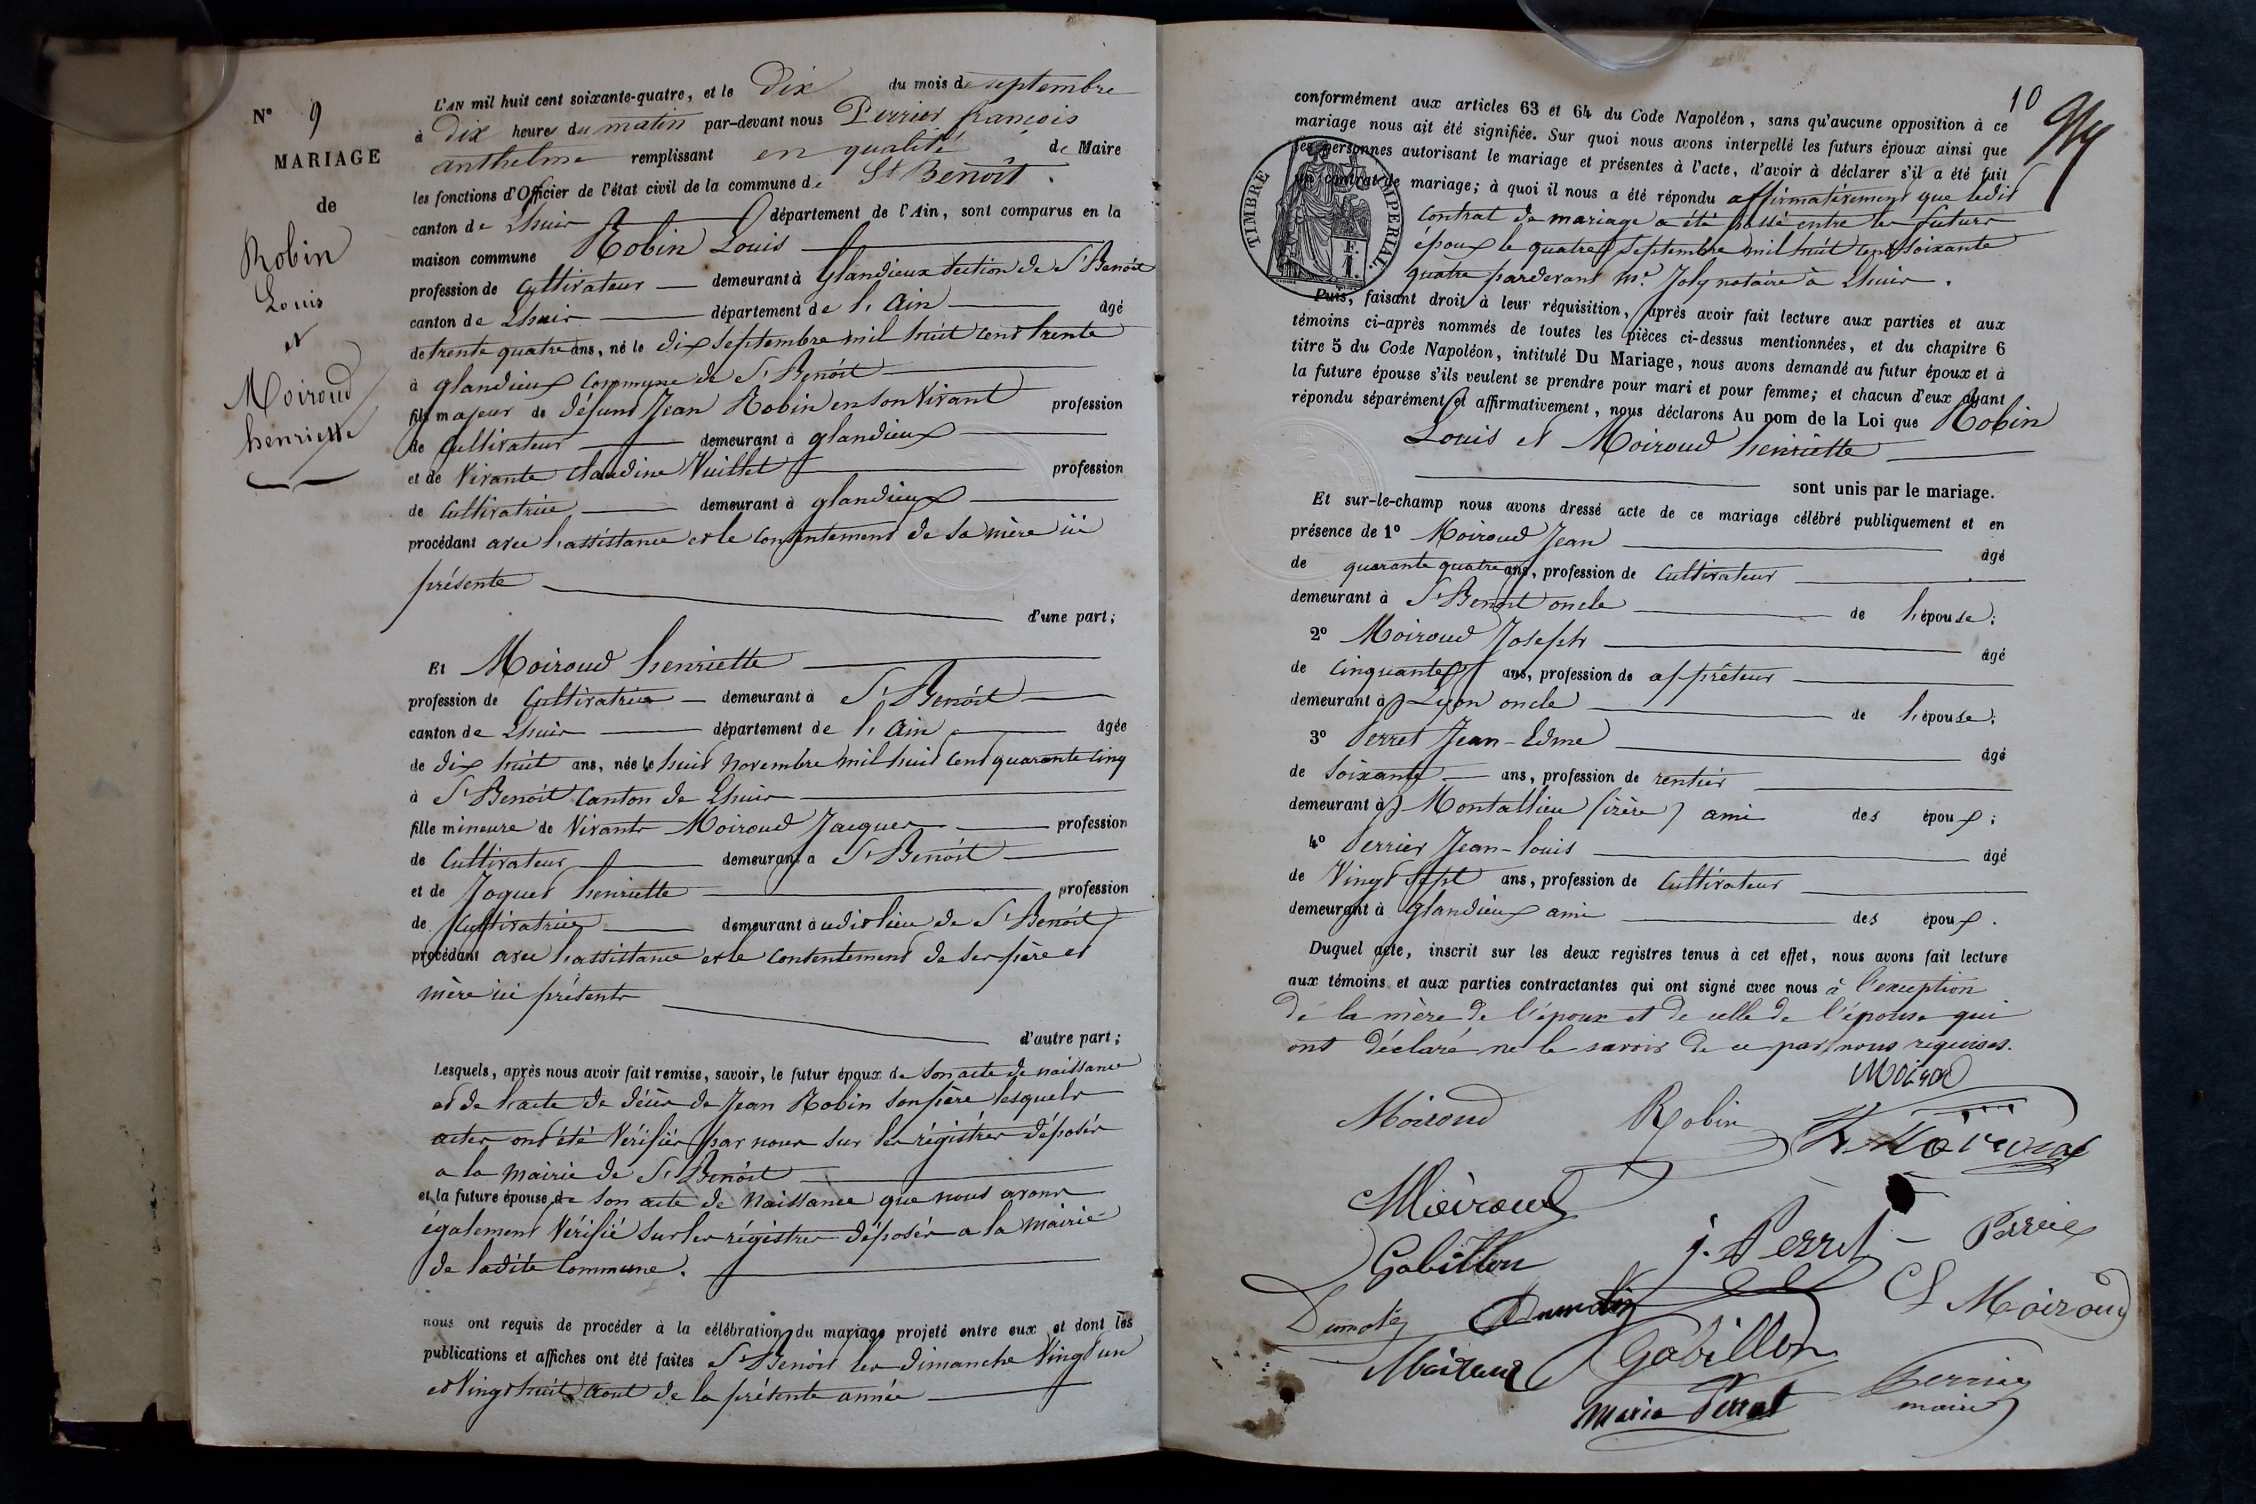 N° 9
MARIAGE
de
Robin
Louis
et
Moiroud
henriette
L'AN mil huit cent soixante-quatre, et le dix du mois de septembre
à dix heures du matin par-devant nous Perrier françois
anthelme remplissant en qualité de Maire
les fonctions d'Officier de l'état civil de la commune de St Benoît.
canton de Lhuis département de l'Ain, sont comparus en la
maison commune Robin Louis
profession de Cultivateur demeurant à Glandieux section de St Benoit
canton de Lhuis département de l'Ain âgé
de trente quatre ans, né le dix septembre mil huit cent trente
à glandieux Commune de St Benoit
fils majeur de défunt Jean Robin en son Vivant profession
de Cultivateur demeurant à glandieux
et de Vivante Claudine Vuillet profession
de Cultivatrice demeurant à glandieux
procédant avec l'assistance et le Consentement de sa mère ici
présente
d'une part;
Et Moiroud henriette
profession de Cultivatrice demeurant à St Benoit
canton de Lhuis département de l'Ain âgée
de dix huit ans, née le huit Novembre mil huit Cent quarante Cinq
à St Benoit Canton de Lhuis
fille mineure de Vivants Moiroud Jacques profession
de Cultivateur demeurant à St Benoit
et de Joguet henriette profession
de Cultivatrice demeurant à cedit lieu de St Benoit
procédant avec l'assistance et le Consentement de ses père et
mère ici présents
d'autre part;
Lesquels, après nous avoir fait remise, savoir, le futur époux de Son acte de naissance
et de l'acte de décès de Jean Robin Son père lesquels
actes ont été Vérifiés par nous sur les régistres déposés
a la Mairie de St Benoit
et la future épouse de son acte de Naissance que nous avons
également Vérifié Sur les régistres déposés a la Mairie
de ladite Commune.
nous ont requis de procéder à la célébration du mariage projeté entre eux et dont les
publications et affiches ont été faites St Benoit les dimanche Vingt un
et Vingt huit Aout de la présente année
10
conformément aux articles 63 et 64 du Code Napoléon, sans qu'aucune opposition à ce
mariage nous ait été signifiée. Sur quoi nous avons interpellé les futurs époux ainsi que
les personnes autorisant le mariage et présentes à l'acte, d'avoir à déclarer s'il a été fait
un contrat de mariage; à quoi il nous a été répondu affirmativement que ledit
Contrat de mariage a été passé entre les futurs
époux le quatre Septembre mil huit cent soixante
quatre pardevant Me Joly notaire à Lhuis.
TIMBRE IMPERIAL
F.
1.
Puis, faisant droit à leur réquisition, après avoir fait lecture aux parties et aux
témoins ci-après nommés de toutes les pièces ci-dessus mentionnées, et du chapitre 6
titre 5 du Code Napoléon, intitulé Du Mariage, nous avons demandé au futur époux et à
la future épouse s'ils veulent se prendre pour mari et pour femme; et chacun d'eux ayant
répondu séparément et affirmativement, nous déclarons Au nom de la Loi que Robin
Louis et Moiroud henriette
sont unis par le mariage.
Et sur-le-champ nous avons dressé acte de ce mariage célébré publiquement et en
présence de 1° Moiroud Jean âgé
de quarante quatre ans, profession de Cultivateur
demeurant à St Benoit oncle de l'épouse;
2° Moiroud Joseph âgé
de Cinquante ans, profession de apprêteur
demeurant à Lyon oncle de l'épouse;
3° Perret Jean-Edme âgé
de Soixante ans, profession de rentier
demeurant à Montallieu (isère) ami des époux;
4° Perrier Jean-louis âgé
de Vingt sept ans, profession de Cultivateur
demeurant à Glandieux ami des époux.
Duquel acte, inscrit sur les deux registres tenus à cet effet, nous avons fait lecture
aux témoins et aux parties contractantes qui ont signé avec nous à l'exception
de la mère de l'époux et de celle de l'épouse qui
ont déclaré ne le savoir de ce par nous requises.
Moiroud Robin
Moiroud
Gobillon j. Perret
Moiroud
Gobillon
Marie Perret Perrier
maire